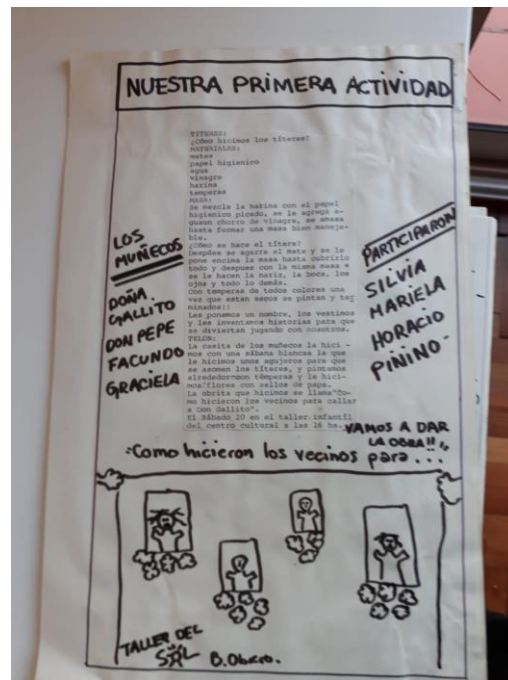 NUESTRA PRIMERA ACTIVIDAD
TITERES:
¿Cómo hicimos los títeres?
MATERIALES:
mates
papel higienico
agua
vinagre
harina
temperas
MASA:
Se mezcla la harina con el papel
higienico picado, se le agrega a-
guaun chorro de vinagre, se amasa
hasta formar una masa bien maneja-
ble.
¿Cómo se hace el títere?
Despúes se agarra el mate y se le
pone encima la masa hasta cubrirlo
todo y despues con la misma masa
se le hacen la nariz, la boca, los
ojos y todo lo demás.
Con temperas de todos colores una
vez que estan secos se pintan y ter
minados!!
Les ponemos un nombre, los vestimos
y les inventamos historias para que
se diviertan jugando con nosotros.
TELON:
La casita de los muñecos la hici -
mos con una sábana blancaa la que
le hicimos unos agujeros para que
se asomen los títeres, y pintamos
alrededor con témperas y le hici-
mos flores con sellos de papa.
La obrita que hicimos se llama"Co-
mo hicieron los vecinos para callar
a Don Gallito".
El Sábado 20 en el taller infantil
del centro cultural a las 16 hs.
LOS
MUÑECOS
DOÑA
GALLITO
DON PEPE
FACUNDO
GRACIELA
PARTICIPARON
SILVIA
MARIELA
HORACIO
PIÑINO-
VAMOS A DAR
LA OBRA!!
"Como hicieron los vecinos para...
TALLER DEL
SOL B. Obrero.